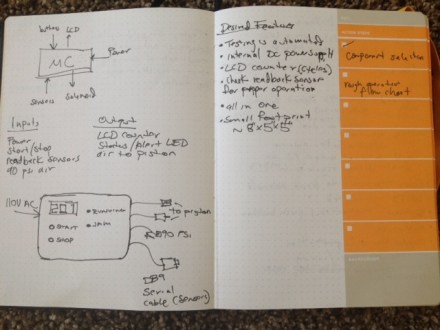 LCD
Power
MC
Sensors
Solenoid
Inputs
Power
Start/Stop
readback sensors
90 psi air
Output
LCD counter
Status/Alert LED
air to piston
110V AC
START
STOP
to piston
90 PSI
DB9
Serial
cable (sensors)
Desired Features
• Testing is automated
• internal DC power supply
• LCD counter (cycles)
• Check readback sensor
for proper operation
• all in one
• Small footprint
~ 8"x5"x5"
Component selection
Rough operation
flow chart